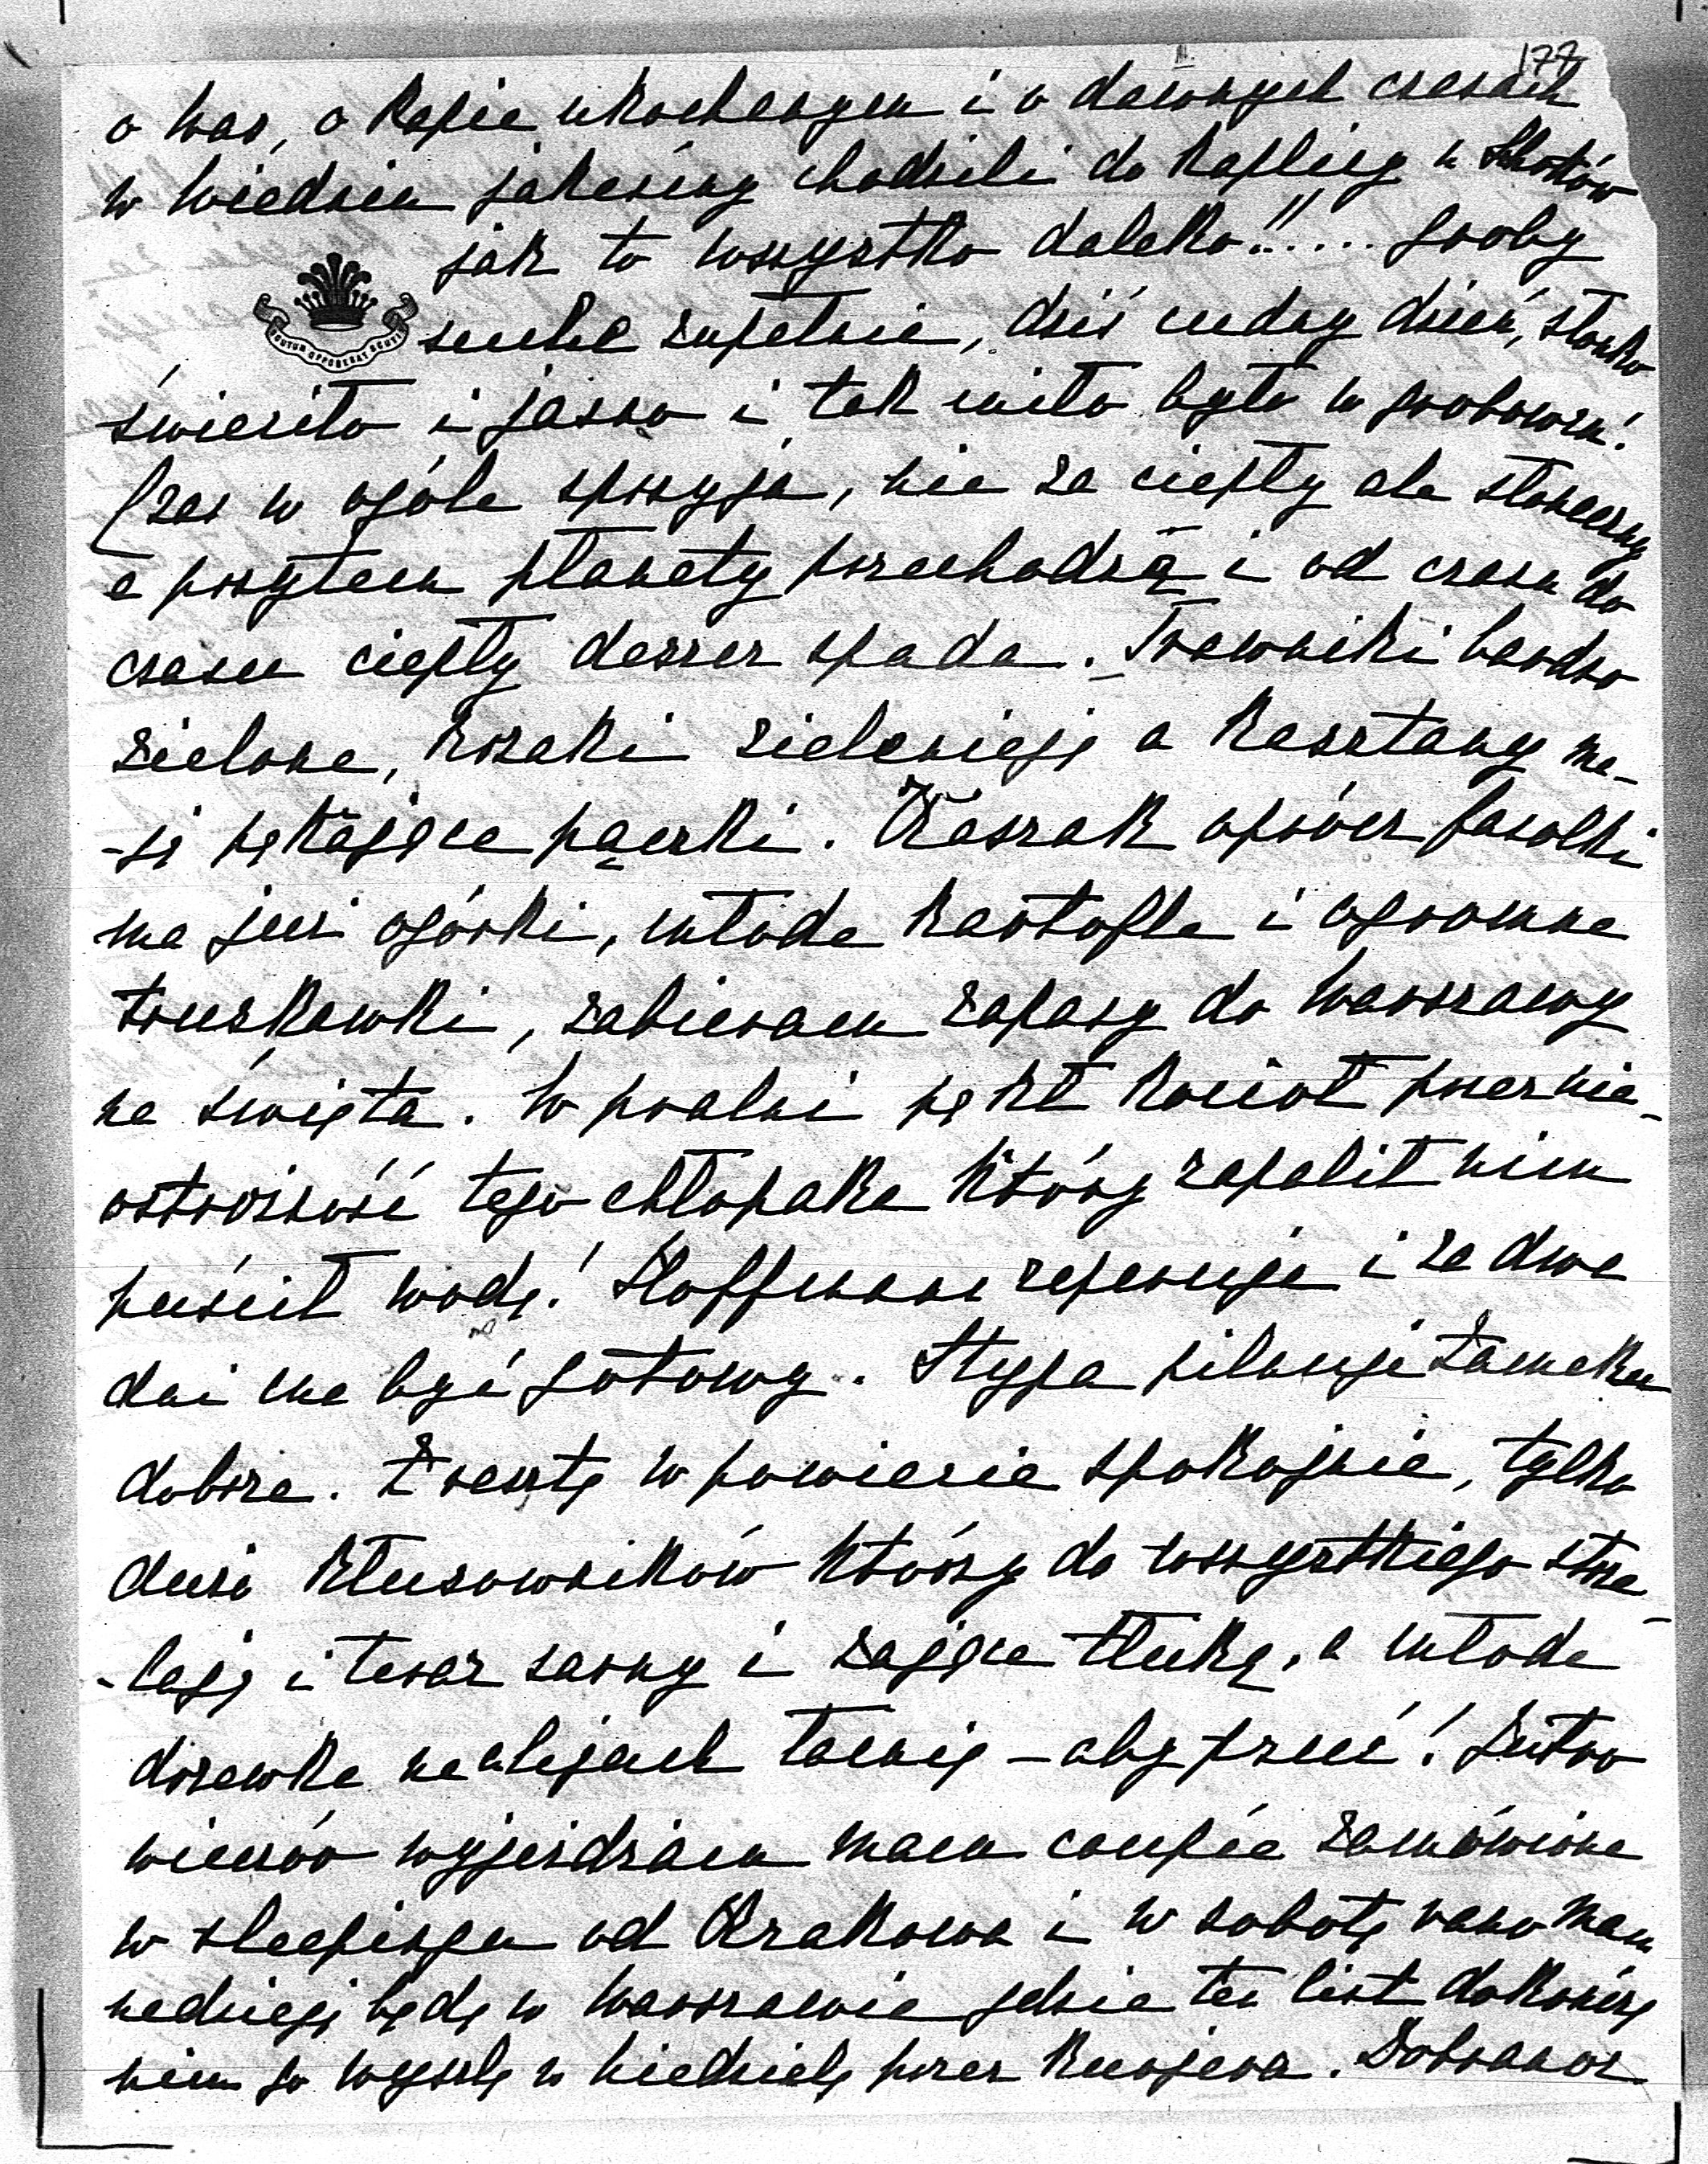 177
o Was, o Papie ukochanym i o dawnych czasach
w Wiedniu jakeśmy chodzili do kaplicy u Schottów
jak to wszystko daleko!!..... Groby
suche zupełnie, dziś cudny dzień, słonko
świeciło i jasno i tak miło było w grobowcu!
Czas w ogóle sprzyja, nie za ciepły ale słoneczny
a przytem planety przechodzą i od czasu do
czasu ciepły deszcz spada. Trawniki bardzo
zielone, krzaki zielenieją a kasztany ma-
-ją pękające pączki. Kaszak oprócz fasolki
ma już ogórki, młode kartofle i ogromne
truskawki, zabieram zapasy do Warszawy
na święta. W pralni pękł kocioł przez nie-
ostrożność tego chłopaka który zapalił nim
puścił wodę! Hoffmann reperuje i za dwa
dni ma być gotowy. Stypa pilnuje Zamku
dobrze. Zresztą w powiecie spokojnie, tylko
dużo kłusowników którzy do wszystkiego strze-
-lają i teraz sarny i zające tłuką, a młode
drzewka na alejach łamią – aby psuć! Jutro
wieczór wyjeżdżam mam coupée zamówione
w sleepingu od Krakowa i w sobotę rano mam
nadzieję będę w Warszawie gdzie ten list dokończę
nim go wyszlę w niedzielę przez kurjera. Dobranoc